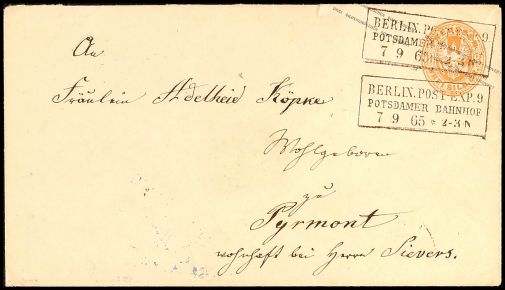 BERLIN. POST EXP. 9
POTSDAMER
7 9 65 2-3 N
BERLIN. POST EXP. 9
POTSDAMER BAHNHOF
7 9 65 * 2-3 N
An
Fräulein Adelheid Köpke
Wohlgeboren
zu
Pyrmont
wohnhaft bei Herrn Sievers.